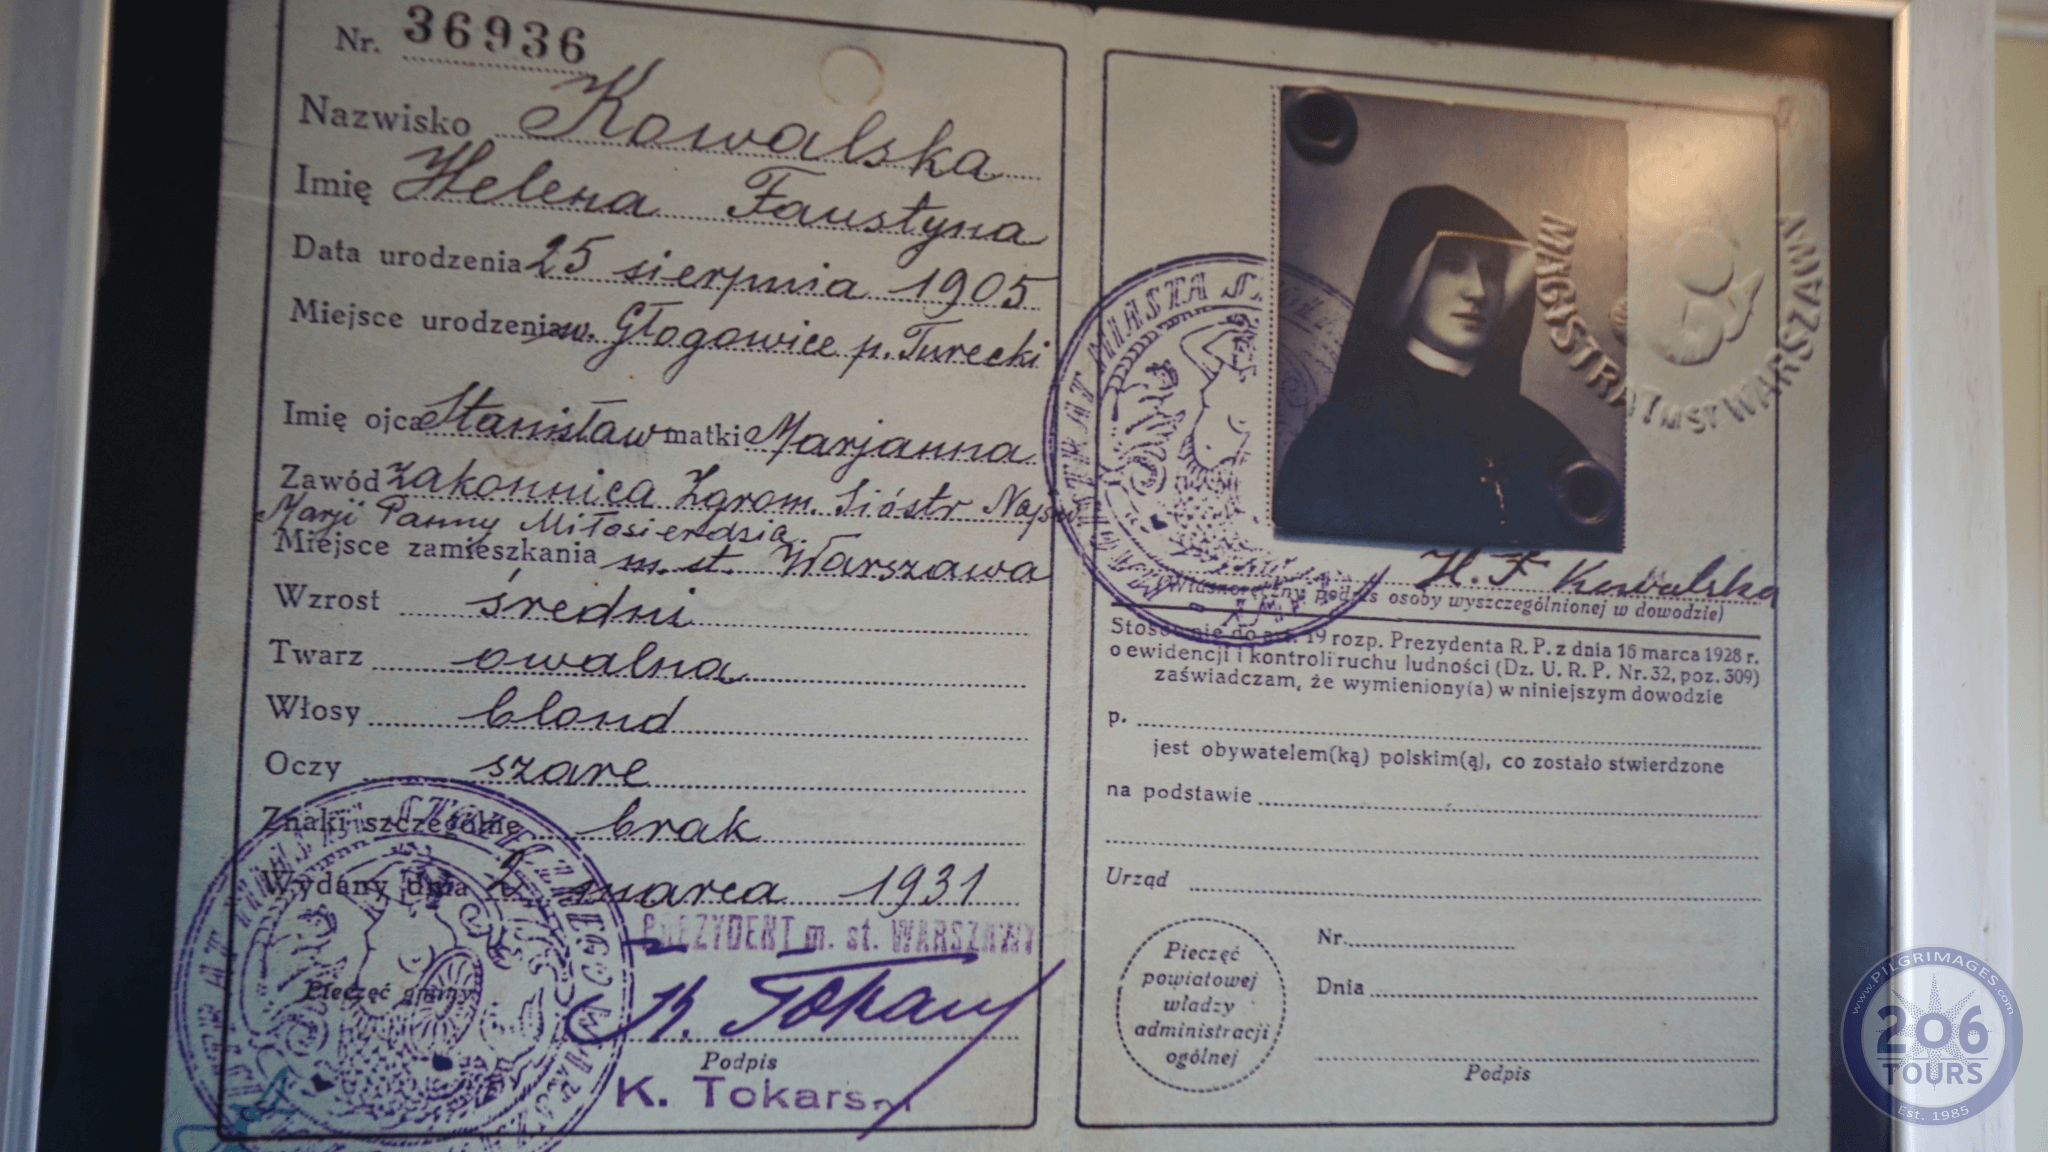 Nr. 36936
Nazwisko Kowalska
Imię Helena Faustyna
Data urodzenia 25 sierpnia 1905
Miejsce urodzenia w. Głogowice p. Turecki
Imię ojca Stanisław matki Marjanna
Zawód zakonnica Zgrom. Sióstr Najśw
Marji Panny Miłosierdzia
Miejsce zamieszkania m. st. Warszawa
Wzrost średni
Twarz owalna
Włosy blond
Oczy szare
Znaki szczególne brak
Wydany dnia 2 marca 1931
PREZYDENT m. st. WARSZAWY
Pieczęć gminy
K.
Podpis
K. Tokars
MAGISTRAT M ST WARSZAWA
MIASTA S.
H. F Kowalska
(Własnoręczny podpis osoby wyszczególnionej w dowodzie)
Stosownie do art. 19 rozp. Prezydenta R. P. z dnia 16 marca 1928 r.
o ewidencji i kontroli ruchu ludności (Dz. U. R. P. Nr. 32, poz. 309)
zaświadczam, że wymieniony(a) w niniejszym dowodzie
p.
jest obywatelem(ką) polskim(ą), co zostało stwierdzone
na podstawie
Urząd
Pieczęć
powiatowej
władzy
administracji
ogólnej
Nr.
Dnia
Podpis
www.PILGRIMAGES.com
206
TOURS
Est. 1985